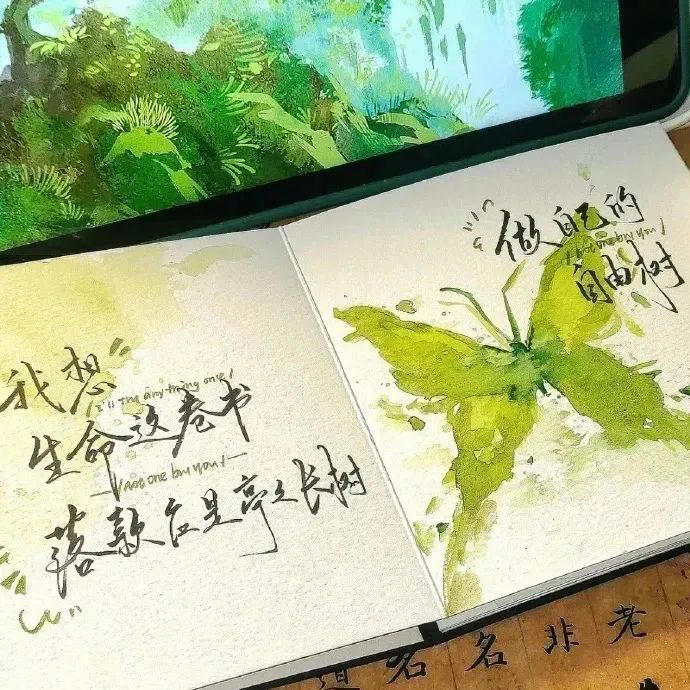 我想
生命这卷书
not one but you
落款应是亭亭长树
做自己的
not one but you
自由树
老
非
名
名
道